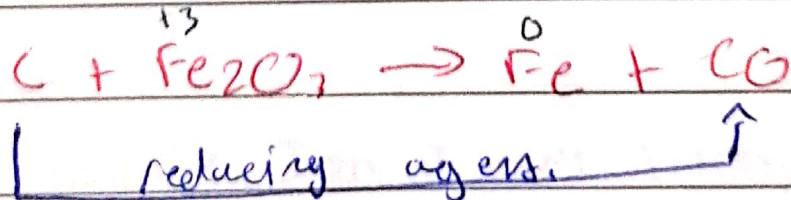 +3 0
C + Fe2O3 → Fe + CO
reducing agent.